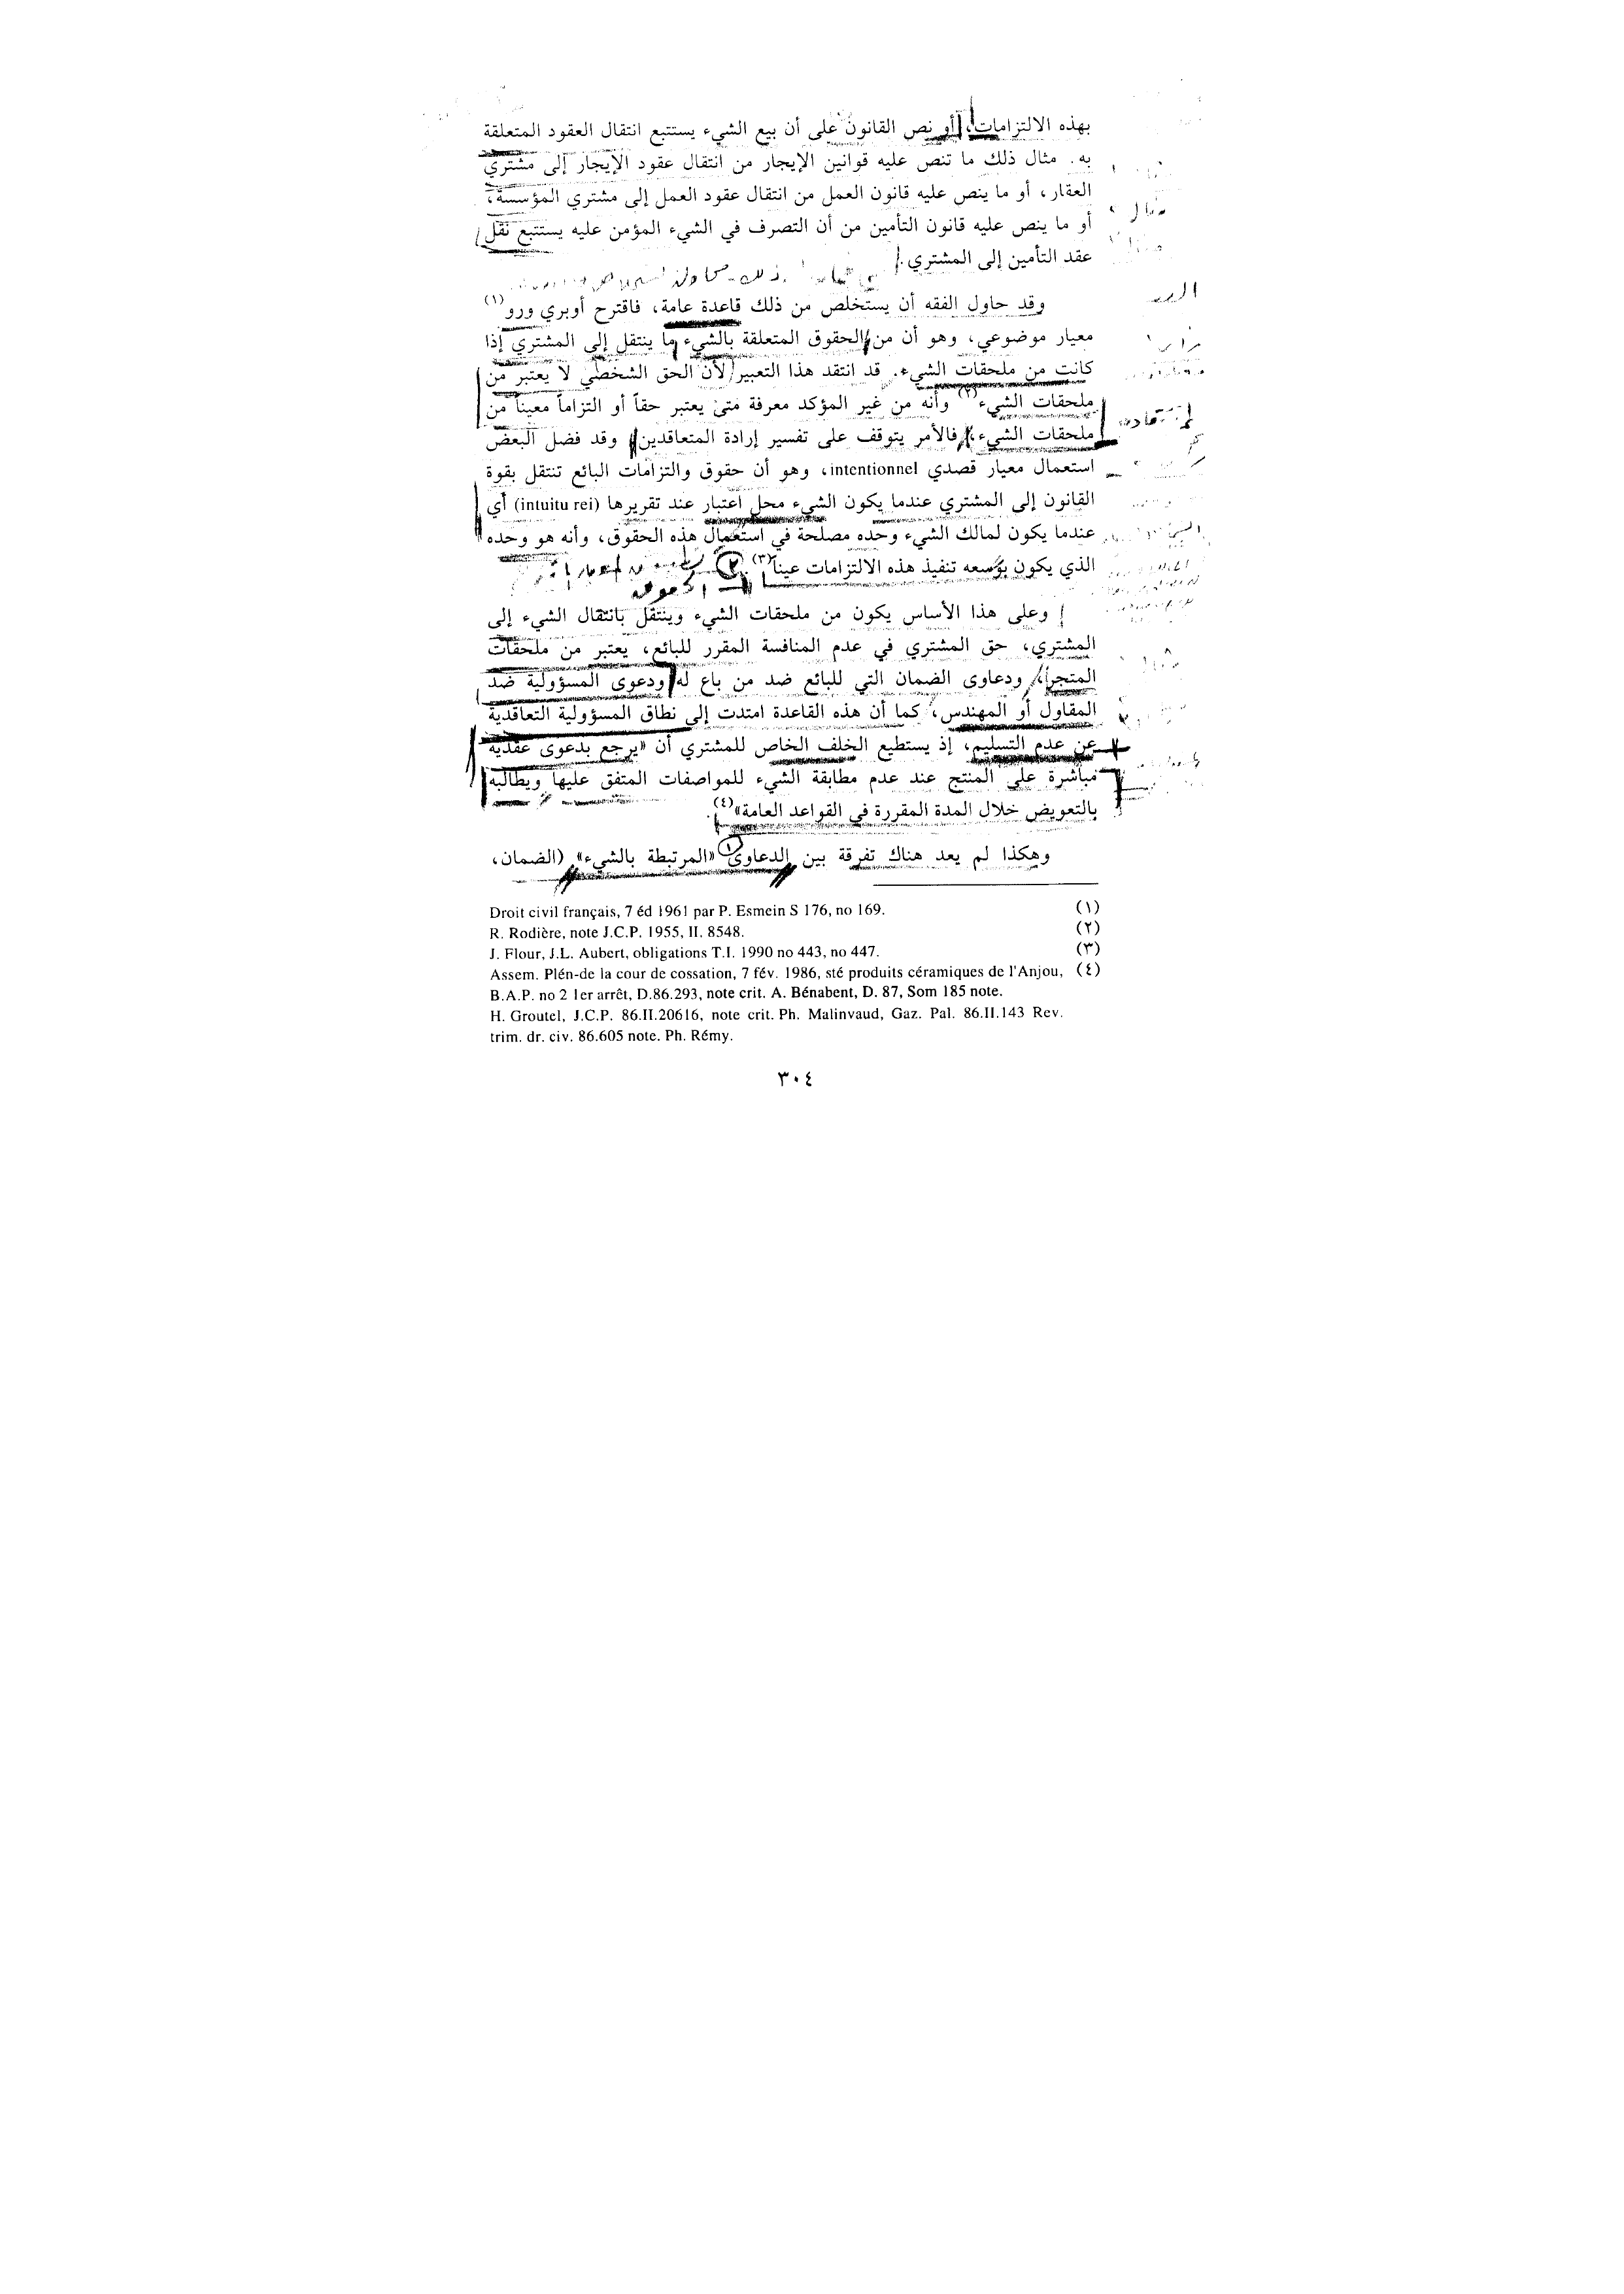 بهذه الالتزامات، أو نص القانون على أن بيع الشيء يستتبع انتقال العقود المتعلقة
به. مثال ذلك ما تنص عليه قوانين الإيجار من انتقال عقود الإيجار إلى مشتري
العقار، أو ما ينص عليه قانون العمل من انتقال عقود العمل إلى مشتري المؤسسة،
أو ما ينص عليه قانون التأمين من أن التصرف في الشيء المؤمن عليه يستتبع نقل
عقد التأمين إلى المشتري.
وقد حاول الفقه أن يستخلص من ذلك قاعدة عامة، فاقترح أوبري ورو(١)
معيار موضوعي، وهو أن من الحقوق المتعلقة بالشيء ما ينتقل إلى المشتري إذا
كانت من ملحقات الشيء. قد انتقد هذا التعبير لأن الحق الشخصي لا يعتبر من
ملحقات الشيء(٢) وأنه من غير المؤكد معرفة متى يعتبر حقاً أو التزاماً معيناً من
ملحقات الشيء، فالأمر يتوقف على تفسير إرادة المتعاقدين وقد فضل البعض
استعمال معيار قصدي intentionnel، وهو أن حقوق والتزامات البائع تنتقل بقوة
القانون إلى المشتري عندما يكون الشيء محل اعتبار عند تقريرها (intuitu rei) أي
عندما يكون لمالك الشيء وحده مصلحة في استعمال هذه الحقوق، وأنه هو وحده
الذي يكون بوسعه تنفيذ هذه الالتزامات عيناً(٣).
وعلى هذا الأساس يكون من ملحقات الشيء وينتقل بانتقال الشيء إلى
المشتري، حق المشتري في عدم المنافسة المقرر للبائع، يعتبر من ملحقات
المتجر، ودعاوى الضمان التي للبائع ضد من باع له ودعوى المسؤولية ضد
المقاول أو المهندس، كما أن هذه القاعدة امتدت إلى نطاق المسؤولية التعاقدية
عن عدم التسليم، إذ يستطيع الخلف الخاص للمشتري أن «يرجع بدعوى عقدية
مباشرة على المنتج عند عدم مطابقة الشيء للمواصفات المتفق عليها ويطالبه
بالتعويض خلال المدة المقررة في القواعد العامة»(٤).
وهكذا لم يعد هناك تفرقة بين الدعاوى «المرتبطة بالشيء» (الضمان،
(١) Droit civil français, 7 éd 1961 par P. Esmein S 176, no 169.
(٢) R. Rodière, note J.C.P. 1955, II. 8548.
(٣) J. Flour, J.L. Aubert, obligations T.I. 1990 no 443, no 447.
(٤) Assem. Plén-de la cour de cossation, 7 fév. 1986, sté produits céramiques de l'Anjou,
B.A.P. no 2 1er arrêt, D.86.293, note crit. A. Bénabent, D. 87, Som 185 note.
H. Groutel, J.C.P. 86.II.20616, note crit. Ph. Malinvaud, Gaz. Pal. 86.II.143 Rev.
trim. dr. civ. 86.605 note. Ph. Rémy.
٣٠٤